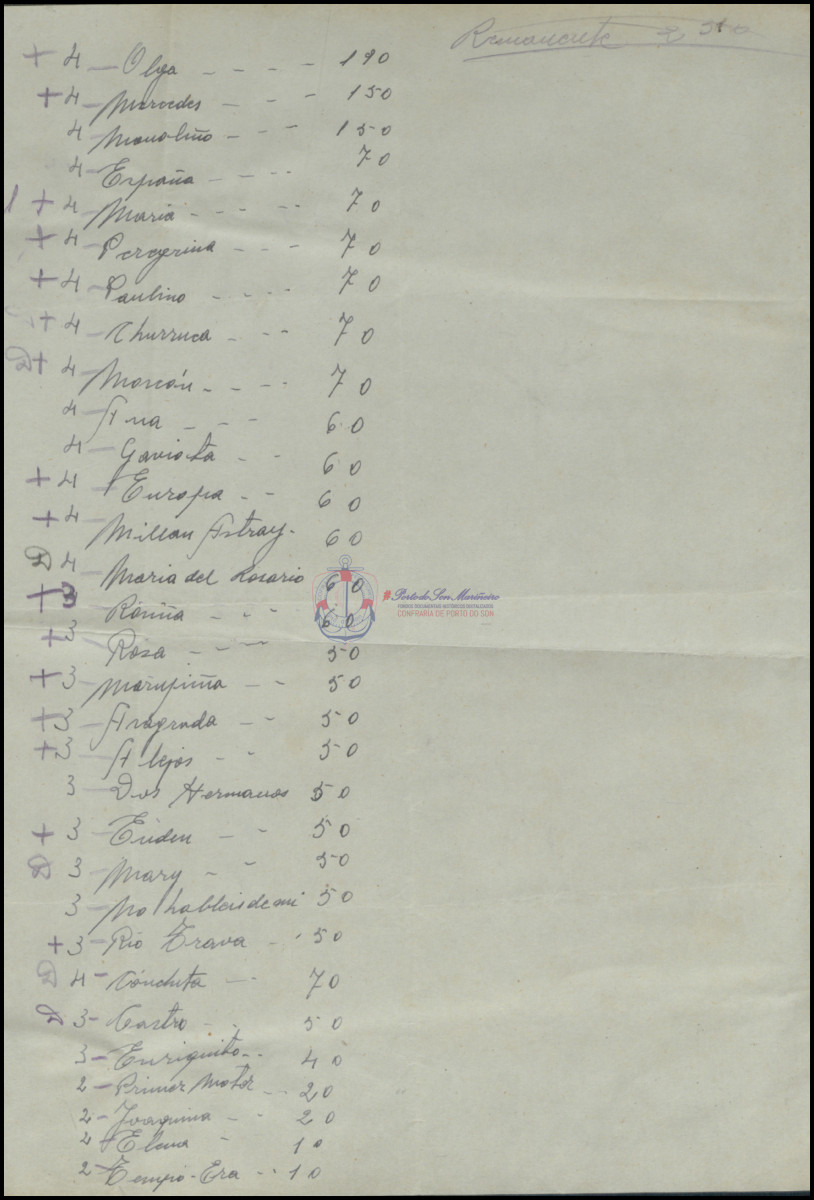 Remanente 510
+ 4 — Olga - - - - 190
+ 4 — Mercedes - - - 150
4 — Manoliño - - - 150
4 — España - - - - 70
1 + 4 — Maria - - - - 70
+ 4 — Peregrina - - - 70
+ 4 — Paulino - - - - 70
+ 4 — Churruca - - - 70
D + 4 — Marcán - - - - 70
4 — Ana - - - 60
4 — Gaviota - - 60
+ 4 — Europa - - 60
+ 4 — Millan Astray - 60
D 4 — Maria del Rosario 60
+ 3 Rosiña - - - 60
+ 3 — Rosa - - - 50
+ 3 — Marusiña - - 50
+ 3 — Aragrada - - 50
+ 3 — Alejos - - 50
3 — Dos Hermanos 50
+ 3 — Eiiden - - 50
D 3 — Mary - - 50
3 — No hableis de mi 50
+ 3 — Rio Trava - - 50
D 4 — Conchita - - 70
D 3 — Castro - - 50
3 — Enriquito - - 40
2 — Primer Motor - - 20
2 — Joaquina - - 20
2 — Elena - 10
2 — Tempo-Era - - 10
Porto do Son Mariñeiro
FONDOS DOCUMENTAIS HISTÓRICOS DIXITALIZADOS
CONFRARÍA DE PORTO DO SON